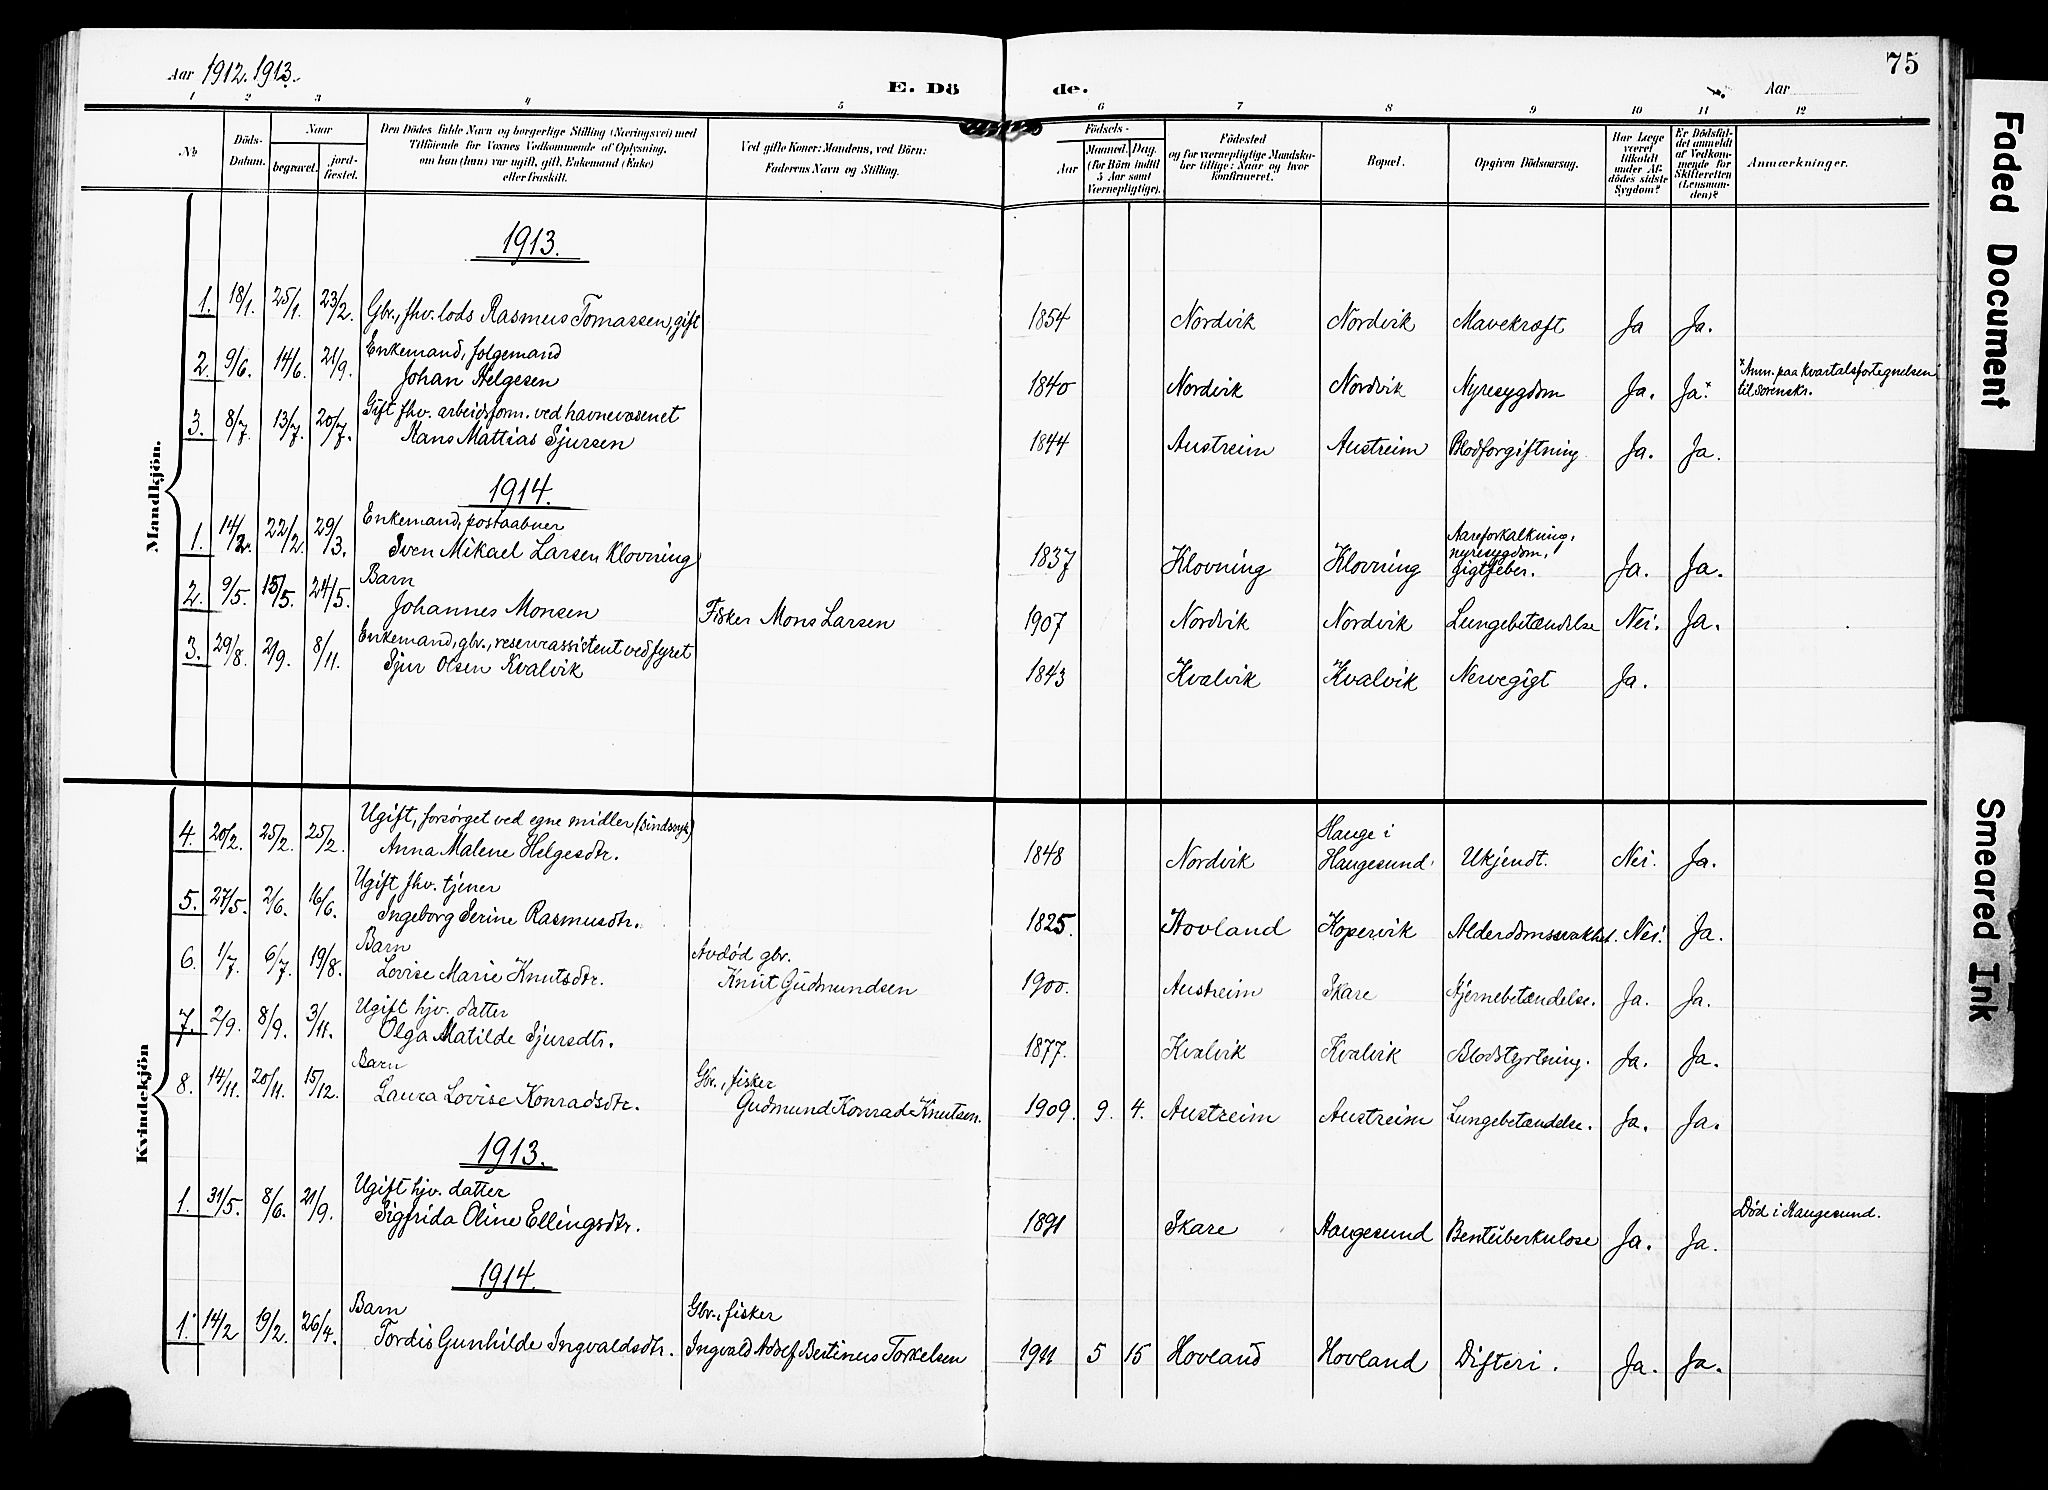 Aar 1912. 1913.
E. Dö de.
Aar
75
1 2 3 4 5 6 7 8 9 10 11 12
No
Döds-Datum.
Naar
begravet.
jord-fæstet.
Den Dödes fulde Navn og borgerlige Stilling (Næringsvei) med
Tilföiende for Voxnes Vedkommende af Oplysning,
om han (hun) var ugift, gift, Enkemand (Enke)
eller fraskilt.
Ved gifte Koner: Mandens, ved Börn:
Faderens Navn og Stilling.
Födsels-
Aar
Maaned. Dag.
(for Börn indtil
5 Aar samt
Værnepligtige).
Födested
og for værnepligtige Mandskaber tillige: Naar og hvor konfirmeret.
Bopæl.
Opgiven Dödsaarsag.
Har Læge været tilkaldt under Afdödes sidste Sygdom?
Er Dödsfaldet anmeldt af Vedkommende for Skifteretten (Lensmanden)?
Anmærkninger.
Mandkjön.
1913.
1. 18/1. 25/1. 23/2. Gbr., fhv. lods Rasmus Tomassen, gift 1854 Nordvik Nordvik Mavekræft Ja Ja.
Enkemand, folgemand
2. 9/6. 14/6. 21/9. Johan Helgesen 1840 Nordvik Nordvik Nyresygdom Ja. Ja.* *Anm. paa kvartalsfortegnelsen
til sorenskr.
Gift fhv. arbeidsform. ved havnevæsenet
3. 8/7. 13/7. 20/7. Hans Mattias Sjursen 1844 Austreim Austreim Blodforgiftning. Ja. Ja.
1914.
Enkemand, postaabner
1. 14/2. 22/2. 29/3. Sven Mikael Larsen Klovning 1837 Klovning Klovning Aareforkalkning,
nyresygdom,
gigtfeber. Ja. Ja.
Barn
2. 9/5. 15/5. 24/5. Johannes Monsen Fisker Mons Larsen 1907 Nordvik Nordvik Lungebetændelse Nei. Ja.
Enkemand, gbr., reserveassistent ved fyret
3. 29/8. 2/9. 8/11. Sjur Olsen Kvalvik 1843 Kvalvik Kvalvik Nervegigt Ja.
Kvindekjön
Ugift, forsørget ved egne midler (sindssyk)
4. 20/2. 25/2. 25/2. Anna Malene Helgesdtr. 1848 Nordvik Hauge i
Haugesund. Ukjendt. Nei. Ja.
Ugift fhv. tjener
5. 27/5. 2/6. 16/6. Ingeborg Serine Rasmusdtr. 1825. Hovland Kopervik Alderdomssvakhet. Nei. Ja.
Barn Avdød gbr.
6. 1/7. 6/7. 19/8. Lovise Marie Knutsdtr. Knut Gudmundsen 1900. Austreim Skare Hjernebetændelse. Ja. Ja.
Ugift hjv. datter
7. 2/9. 8/9. 3/11. Olga Matilde Sjursdtr. 1877. Kvalvik Kvalvik Blodstyrtning. Ja. Ja.
Barn Gbr., fisker
8. 14/11. 20/11. 15/12. Laura Lovise Konradsdtr. Gudmund Konrad Knutsen. 1909. 9. 4. Austreim Austreim Lungebetændelse. Ja. Ja.
1913.
Ugift hjv. datter
1. 31/5. 8/6. 21/9. Sigfrida Oline Ellingsdtr. 1891 Skare Haugesund Bentuberkulose Ja. Ja. Død i Haugesund.
1914.
Barn Gbr., fisker
1. 14/2 19/2. 26/4. Tordis Gunhilde Ingvaldsdtr. Ingvald Adolf Bertinus Torkelsen 1911 5 15 Hovland Hovland Difteri. Ja. Ja.
Faded Document
Smeared Ink